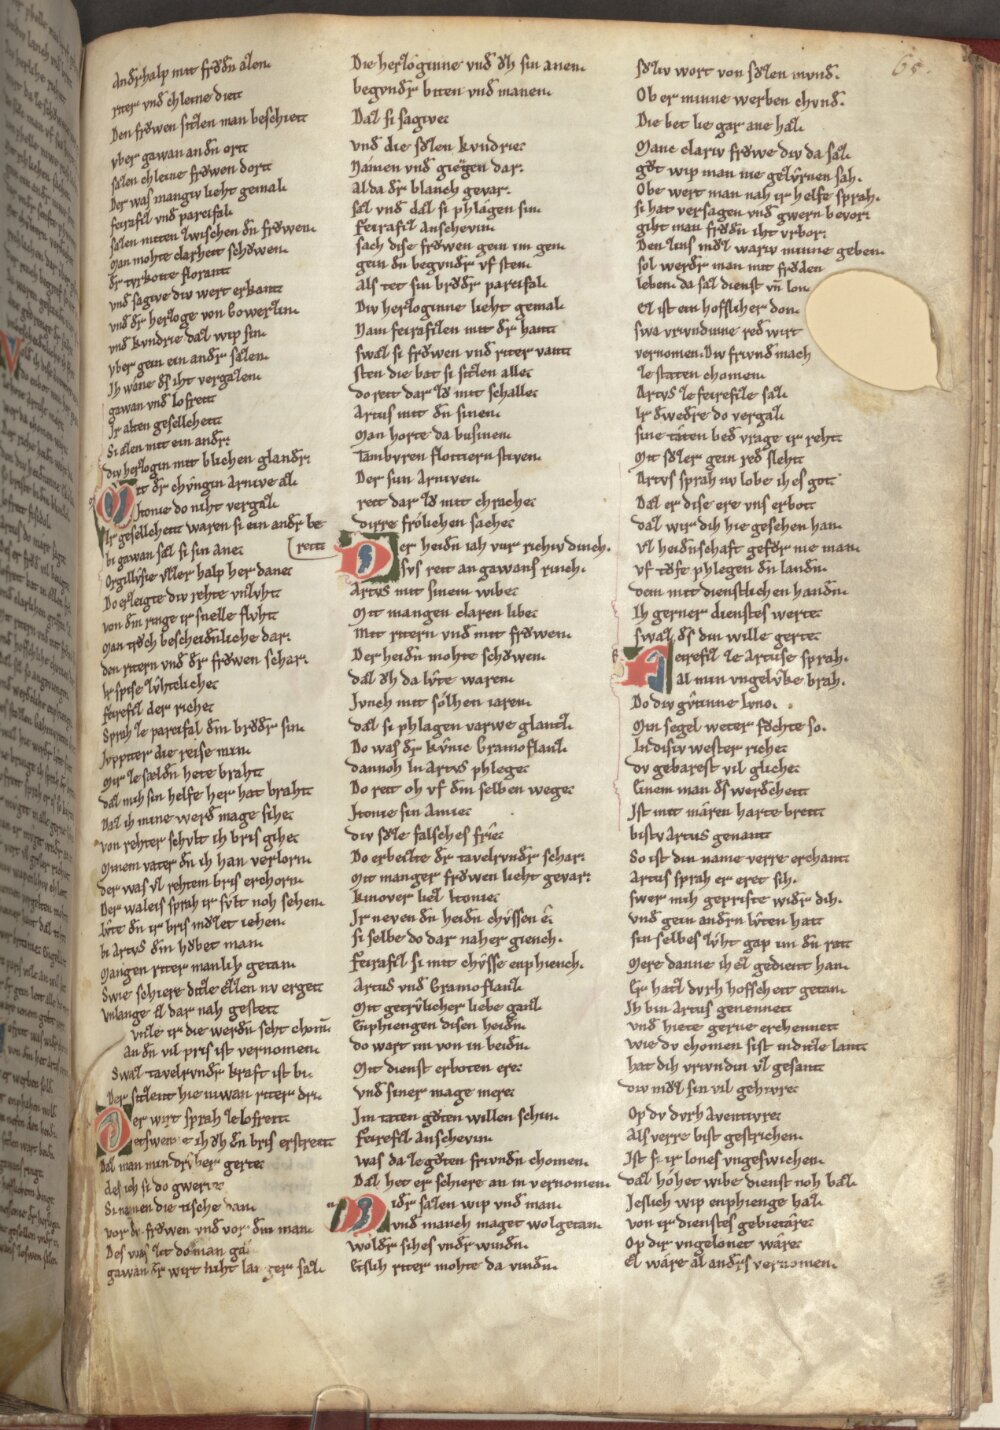 andr halp mit frͦdn alen.
riter vnd chleine diet
Den frowen sitzen man beschiett
vber gawan andn ortt
sazen chleine frowen dortt
Der was mangiv lieht gemal.
feirafiz vnd parcifal.
sazen mitten zwischen dn frowen.
man mohte clarheit schowen.
dr tvrkoite florantt
vnd sagive div wert erkantt
vnd dr herzoge von Gowerzin.
vnd kvndrie daz wip sin.
vber gein ein andr sazen.
Ih wæne ds iht vergazen.
gawan vnd Iofreitt
Ir alten gesellcheitt
Si azen mit ein andr.
div herzogin mit blichen glandr.
Mit dr chvngin Arnive az.
Itonie do niht vergaz.
Ir gesellcheitt waren si ein andr be
bi gawan saz si sin ane.
Orgillvse vzer halp her dane.
Do erzeigte div rehte vnzvht
von dm ringe ir snelle flvht.
man trvch bescheidnliche dar.
den rittern vnd dr frowen schar.
Ir spise zvhtecliche.
feirefiz der riche.
Sprah ze parcifal dm brvdr sin.
Ivppiter die reise min.
Mir ze sælden hete braht
daz mich sin helfe her hat braht
Daz ih mine werd mage sihe.
von rehter schvlt ih bris gihe.
Minem vater dn ih han verlorn.
der was vz rehtem bris erchorn.
Der waleis sprah ir svlt noh sehen.
lvte dn ir bris mvzet iehen.
bi Artvs dem hovbet man.
Mangen riter manlih getan.
Swie schiere ditze ezzen nv ergett
vnlange ez dar nah gestett
vnze ir die werdn seht chom
an dn vil pris ist vernomen.
Swaz tavelrvndr kraft ist bi.
Der sitzent hie niwan riter dri.
Der wirt sprah ze Iofreitt
etswenne ih oh dn bris erstreitt
Daz man min dr zv her gerte.
des ich si do gwerte
Si nemen die tische dan.
vor dn frowen vnd vor dm man.
Des was zit do man gaz
gawan dr wirt niht langer saz.
Die herzoginne vnd oh sin anen.
begvndr biten vnd manen.
Daz si sagive.
vnd die svzen kvndrie.
Namen vnd giengen dar.
alda dr blanch gevar.
saz vnd daz si phlægen sin.
Feirafiz Anschevin.
sach dise frowen gein im gen.
gein dn begvndr vf sten.
als tet sin brvdr parcifal.
Div herzoginne lieht gemal.
Nam feirafizen mit dr hantt
swaz si frowen vnd riter vantt
sten die bat si sitzen alle.
do reit dar zv mit schalle.
Artus mit dn sinen.
Man horte da businen.
Tambvren floitiern stiven.
Der sun Arniven.
reit dar zv mit chrache.
dirre frolichen sache.
reitt
Der heidn iah vur richiv dinch.
sus reit an gawans rinch.
Artvs mit sinem wibe.
Mit mangen claren libe.
Mit ritern vnd mit frowen.
Der heidn mohte schowen.
daz oh da lvte waren.
Ivnch mit solhen iaren.
daz si phlagen varwe glantz.
Do was dr kvnic Gramoflanz.
dannoh in Artvs phlege.
Do reit oh vf dm selben wege.
Itonie sin Amie.
div svze falsches frie.
Do erbeizte dr tavelrvndr schar.
Mit manger frowen lieht gevar.
kinover liez Itonie.
Ir neven dn heidn chvssen e.
si selbe do dar naher giench.
Feirafiz si mit chvsse enphiench.
Artus vnd Gramoflanz.
Mit getrvlicher liebe ganz.
Enphiengen disen heidn.
do wart im von in beidn.
Mit dienst erboten ere.
vnd siner mage mere.
Im taten gvten willen schin.
Feirefiz Anschevin.
was da ze gvten frivndn chomen.
Daz het er schiere an in vernomen.
Nidr sazen wip vnd man.
vnd manch maget wolgetan.
wolder sihes vndr windn.
Eislih riter mohte da vindn.
svziv wort von svzen mvnd.
Ob er minne werben chvnd.
Die bet lie gar ane haz.
Manc clariv frowe div da saz.
gvt wip man nie gezvrnen sah.
Obe wert man nah ir helfe sprah.
si hat versagen vnd gwern bevor.
giht man frvdn iht vrbor.
Den zins mvz wariv minne geben.
sol werdr man mit frvden
leben. da saz dienst vn lon
Ez ist ein hofflicher don.
swa vrivndinne red wirt
vernomen. Div frivnd mach
ze staten chomen.
Artvs ze feirefize saz.
Ir dwedre do vergaz.
sine taten bed vrage ir reht.
Mit svzer gein red sleht.
Artvs sprah nv lobe ih es got
Daz er dise ere vns erbot
daz wir dih hie gesehen han.
vz heidnschaft gefvr nie man.
vf tofe phlegen dn landn.
dem mit dienstlichen handn.
Ih gerner dienstes werte.
swaz ds din wille gerte.
Feirefiz ze Artuse sprah.
al min vngelvke brah.
Do div gvtinne Ivno.
Min segel weter fvchte so.
In disiv wester riche.
dv gebarest vil gliche.
Einem man ds werdcheit
Ist mit mæren harte breit
bistv Artus genant
So ist din name verre erchant
Artus sprah er eret sih.
swer mih gepriste widr dih.
vnd gein andrn lvten hatt
sin selbes zvht gap im dn ratt
Mere danne ih ez gedient han.
Er hatz dvrh hoffscheit getan.
Ih bin Artus genennett
vnd hiete gerne erchennett
wie dv chomen sist in ditze lantt
hat dih vrivndin vz gesantt
div mvz sin vil gehivre.
Op dv dvrh aventivre.
Als verre bist gestrichen.
Ist si ir lones vngeswichen.
daz hohet wibe dienst noh baz.
Ieslich wip enphienge haz.
von ir dienstes gebietære.
Op dir vngelonet wære.
Ez wære al andrs vernomen.